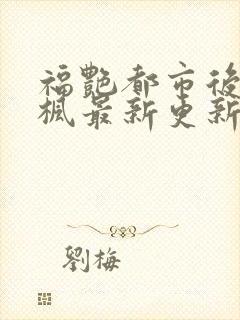 福艷都市後
楓最新更新
劉梅